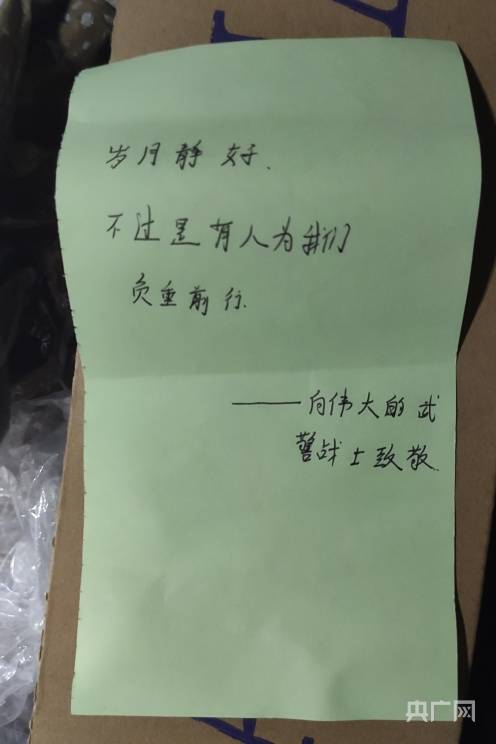 岁月静好.
不过是有人为我们
负重前行.
——向伟大的武
警战士致敬.
央广网